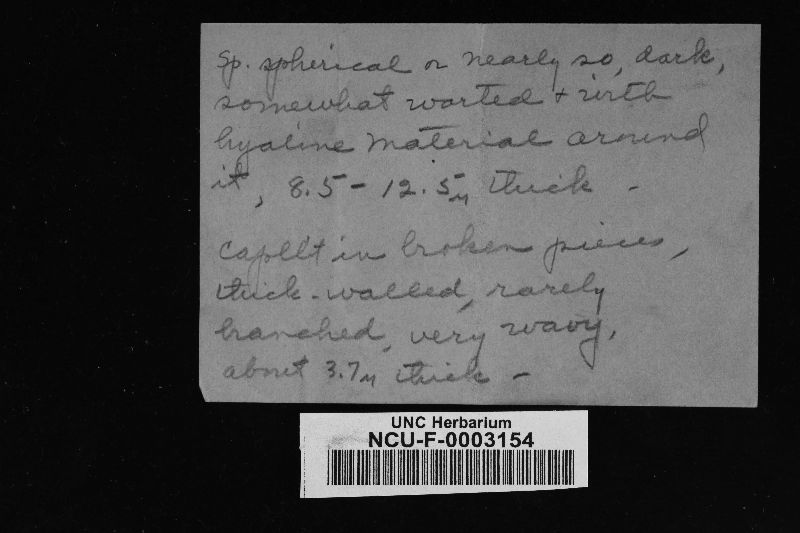 Sp. spherical or nearly so, dark,
somewhat warted + with
hyaline material around
it, 8.5 - 12.5μ thick -
Capll't in broken pieces,
thick-walled, rarely
branched, very wavy,
about 3.7μ thick -
UNC Herbarium
NCU-F-0003154